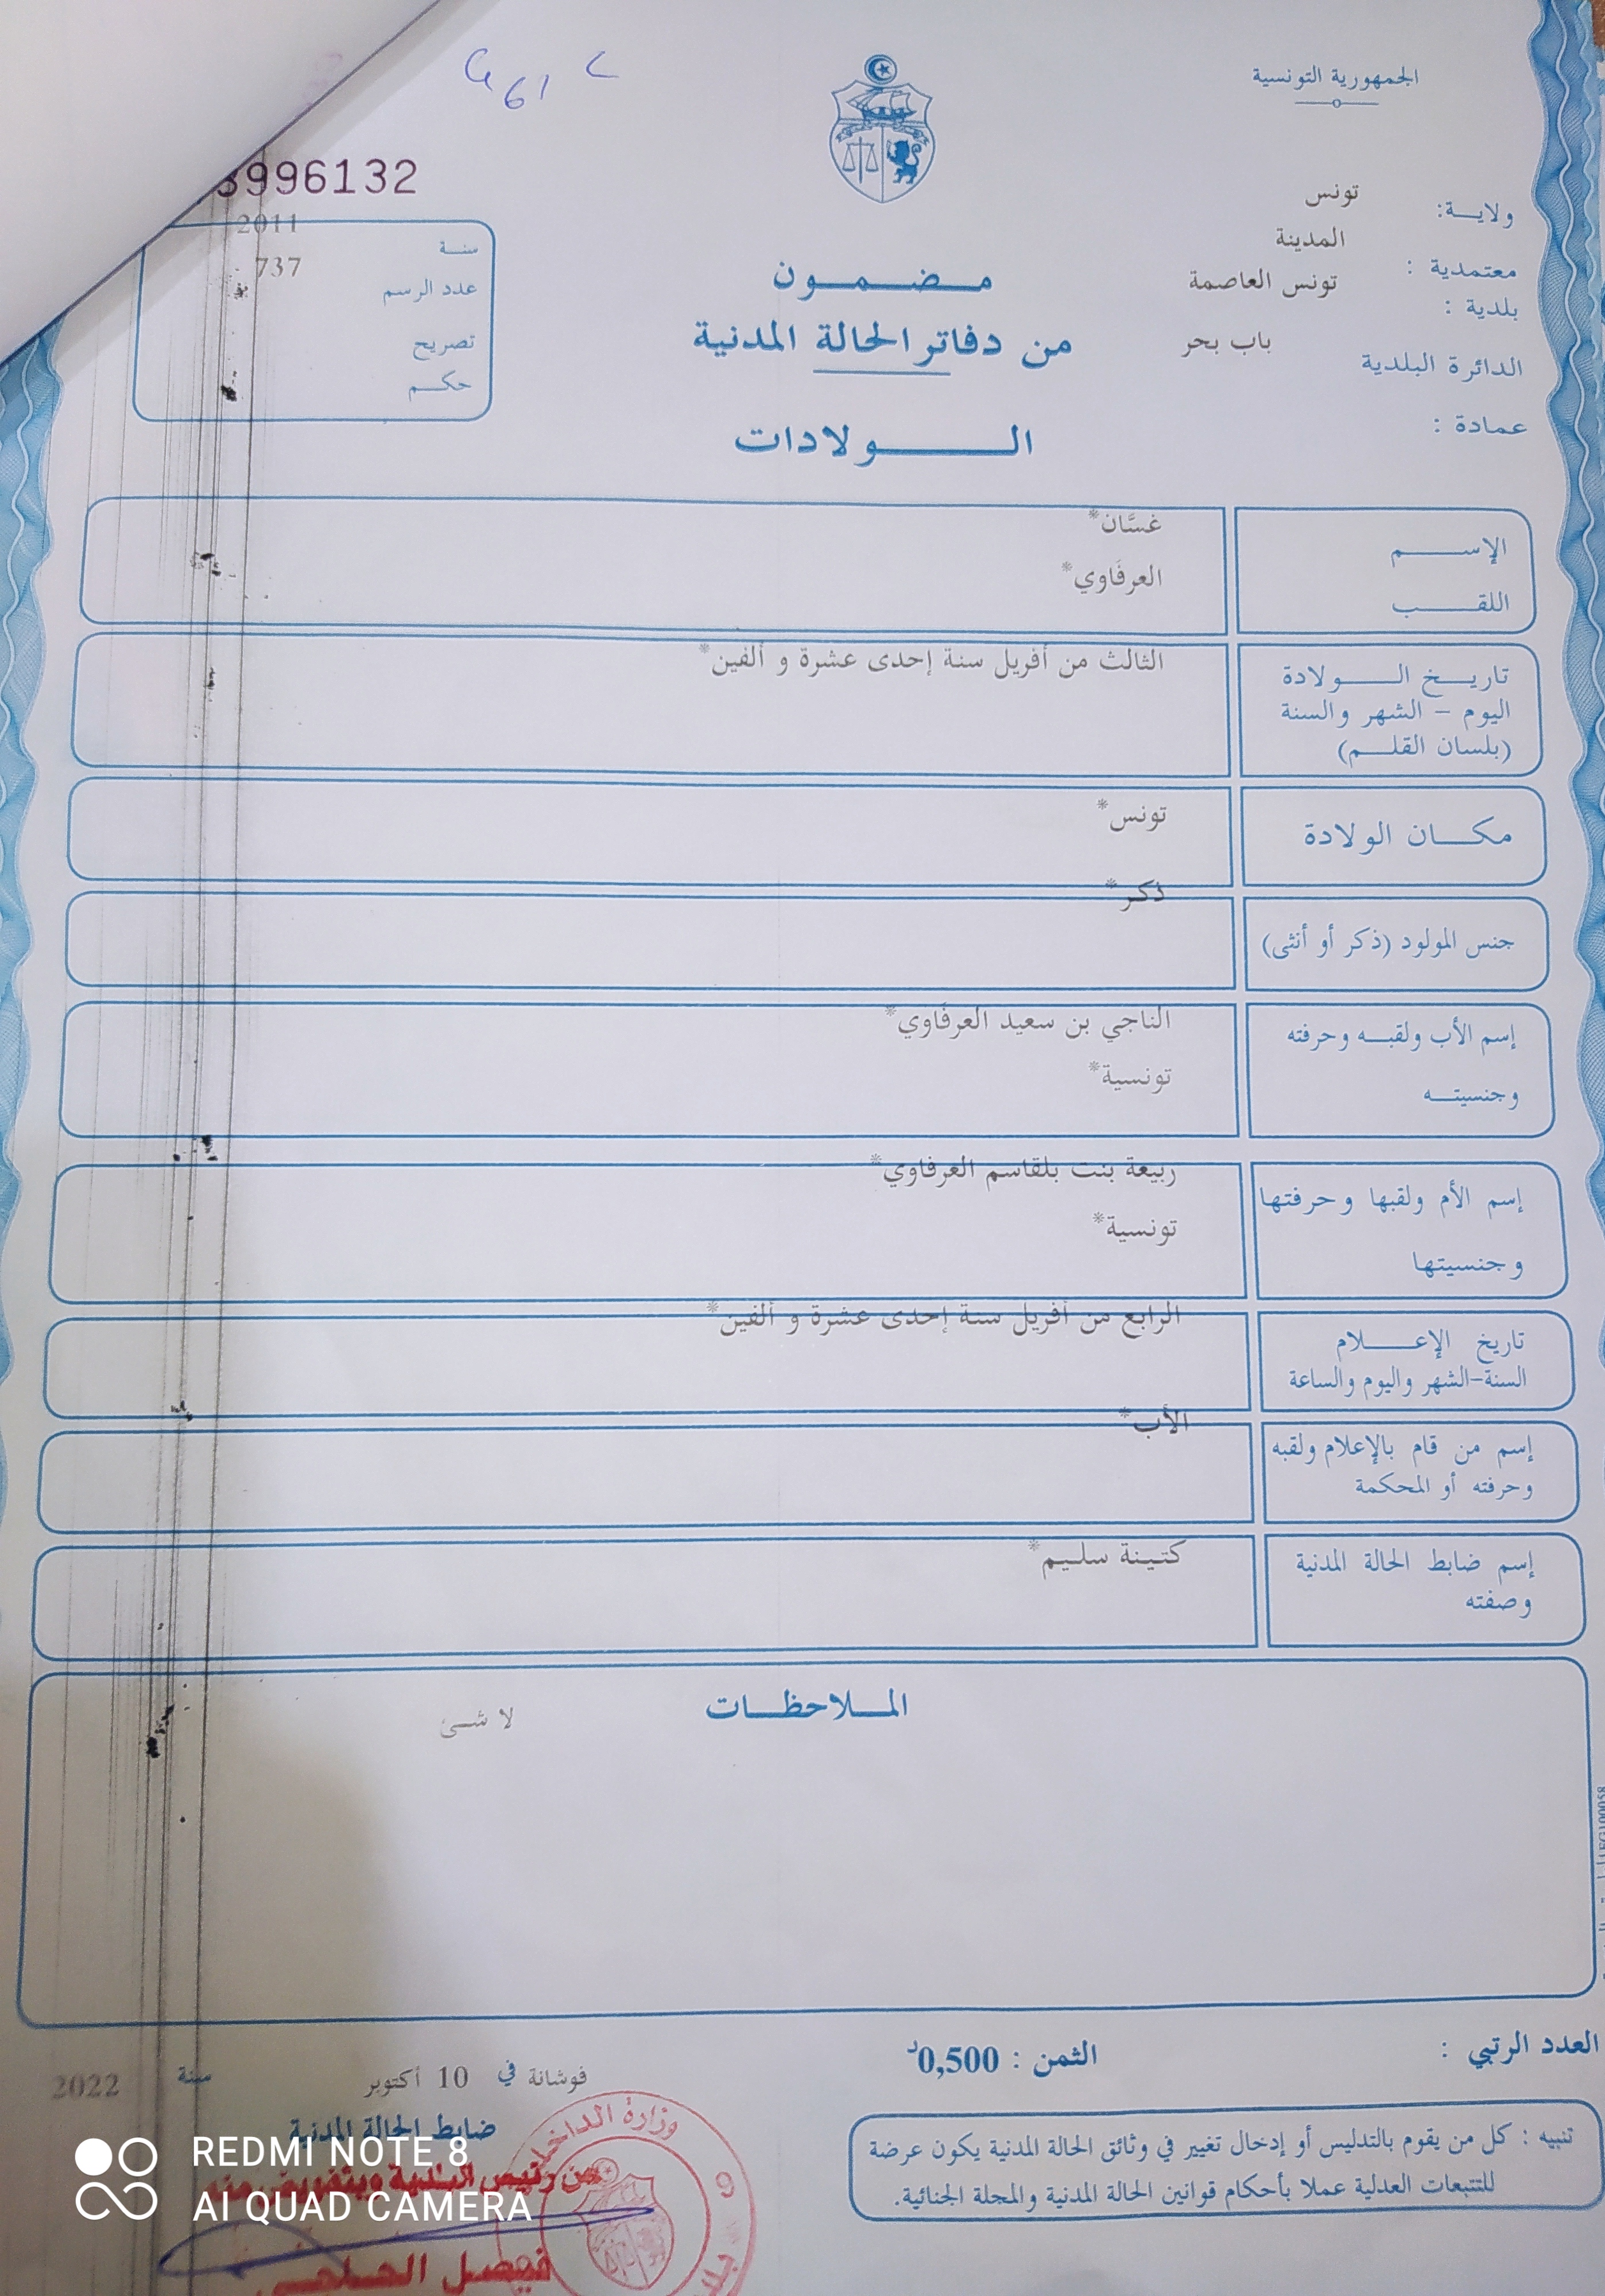 الجمهورية التونسية
ولايـــة: تونس
معتمدية : المدينة
بلدية : تونس العاصمة
الدائرة البلدية باب بحر
عمادة :
996132
سنة 2011
عدد الرسم 737
تصريح
حكم
مضمون
من دفاتر الحالة المدنية
الولادات
الإسم غسَّان*
اللقب العرفَاوي*
تاريخ الولادة
اليوم - الشهر والسنة
(بلسان القلم)
الثالث من أفريل سنة إحدى عشرة و ألفين*
مكان الولادة تونس*
جنس المولود (ذكر أو أنثى) ذكر*
إسم الأب ولقبه وحرفته الناجي بن سعيد العرفَاوي*
وجنسيته تونسية*
إسم الأم ولقبها وحرفتها ربيعة بنت بلقاسم العرفاوي*
وجنسيتها تونسية*
تاريخ الإعلام
السنة-الشهر واليوم والساعة
الرابع من أفريل سنة إحدى عشرة و ألفين*
إسم من قام بالإعلام ولقبه
وحرفته أو المحكمة
الأب*
إسم ضابط الحالة المدنية
وصفته
كتينة سليم*
الملاحظات
لا شئ
العدد الرتبي :
الثمن : 0,500د
فوشانة في 10 أكتوبر سنة 2022
ضابط الحالة المدنية
تنبيه : كل من يقوم بالتدليس أو إدخال تغيير في وثائق الحالة المدنية يكون عرضة
للتتبعات العدلية عملا بأحكام قوانين الحالة المدنية والمجلة الجنائية.
وزارة الداخلية
عن رئيس البلدية وبتفويض منه
فيصل
REDMI NOTE 8
AI QUAD CAMERA